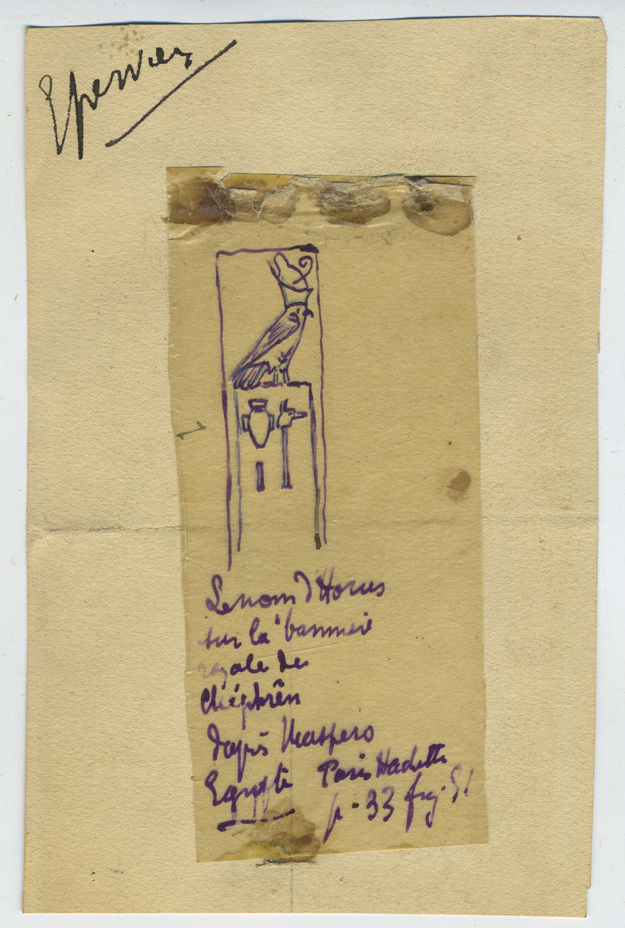 Epervier
Le nom d'Horus
sur la bannière
royale de
Chéphrên
d'après Maspero
Egypte Paris Hachette
p. 33 fig. 51